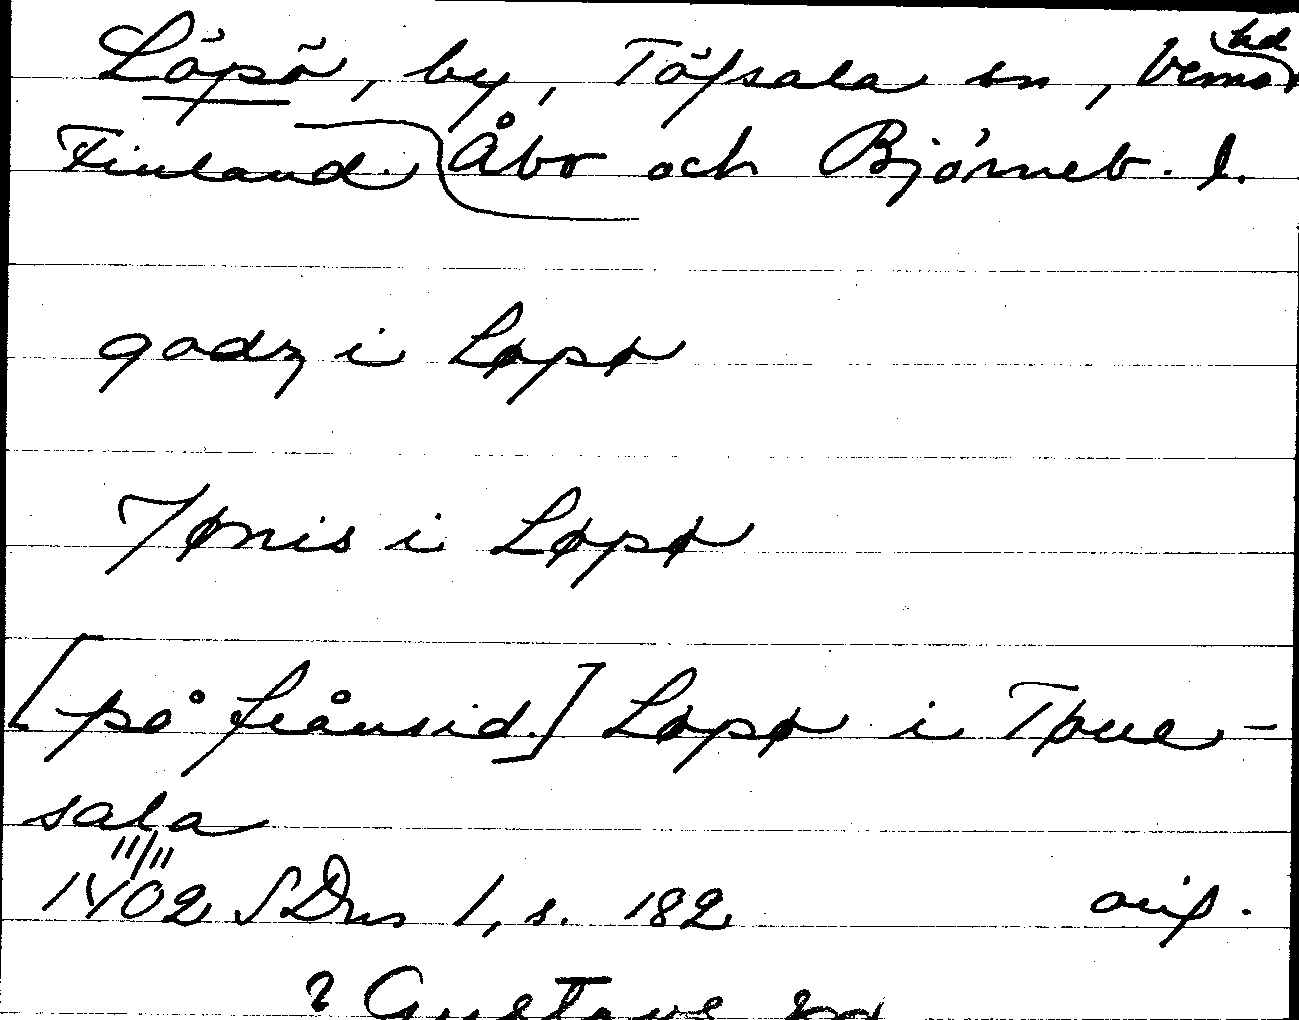 Löpö, by, Töfsala sn, Vemo hd
Finland. Åbo och Björneb. l.
godz i Løpø
Jønis i Løpø
[på frånsid.] Løpø i Thøue-
sala
11/11
1402 SDns 1, s. 182 orig.
? Gustavs sn